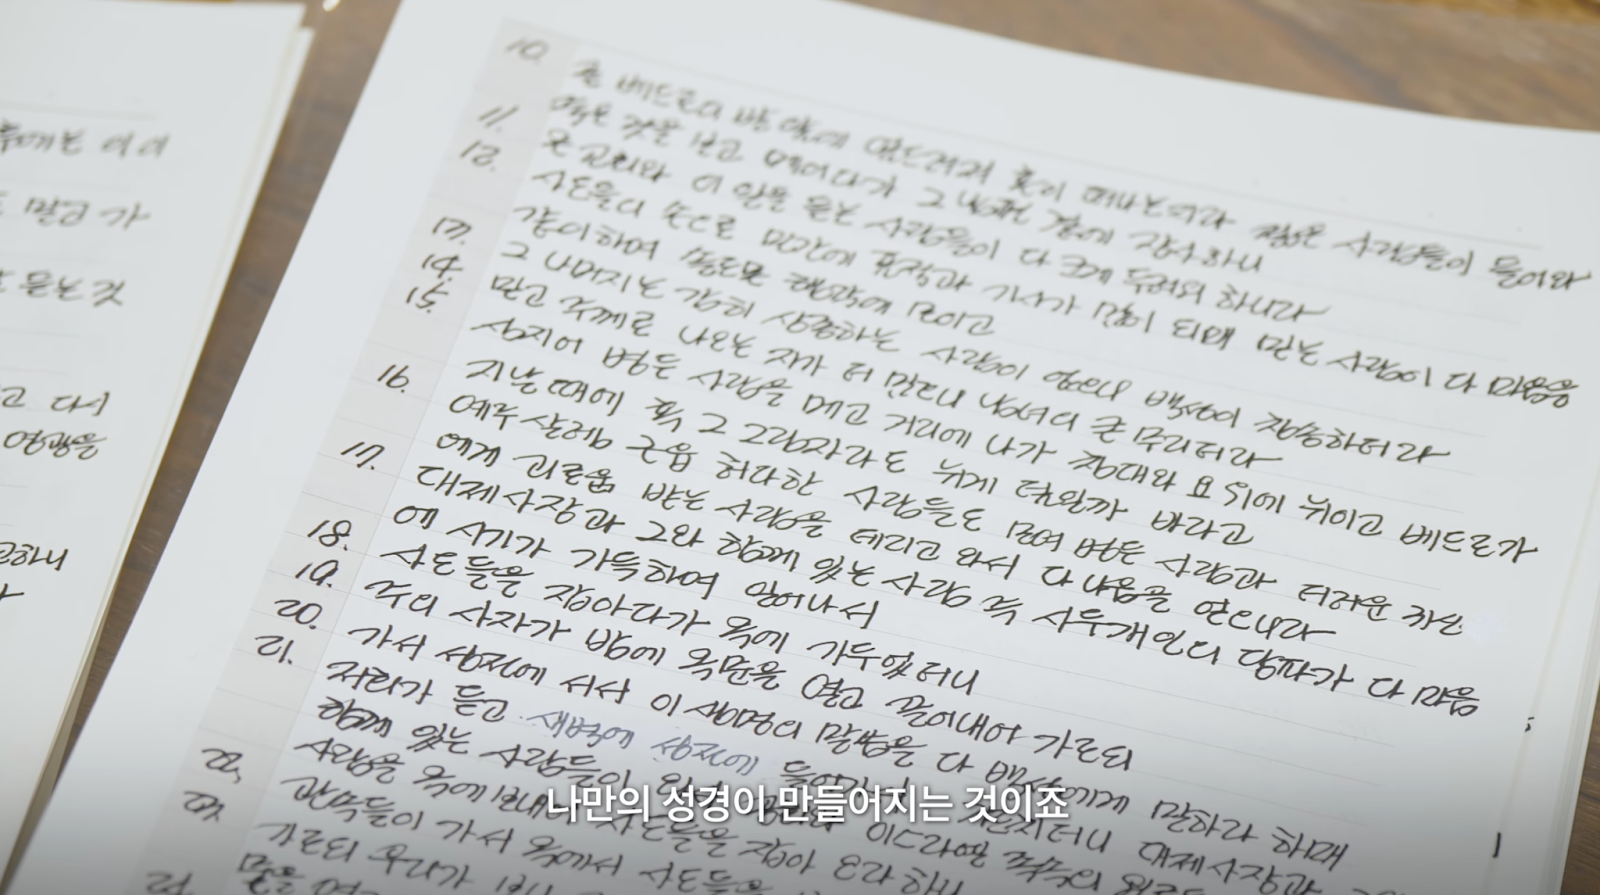 10. 곧 베드로의 발 앞에 엎드러져 혼이 떠나는지라 젊은 사람들이 들어와
죽은 것을 보고 메어다가 그 남편 곁에 장사하니
11. 온 교회와 이 일을 듣는 사람들이 다 크게 두려워 하니라
12. 사도들의 손으로 민간에 표적과 기사가 많이 되매 믿는 사람이 다 마음을
같이하여 솔로몬 행각에 모이고
13. 그 나머지는 감히 상종하는 사람이 없으나 백성이 칭송하더라
14. 믿고 주께로 나오는 자가 더 많으니 남녀의 큰 무리더라
15. 심지어 병든 사람을 메고 거리에 나가 침대와 요 위에 뉘이고 베드로가
지날 때에 혹 그 그림자라도 뉘게 덮일까 바라고
16. 예루살렘 근읍 허다한 사람들도 모여 병든 사람과 더러운 귀신
에게 괴로움 받는 사람을 데리고 와서 다 나음을 얻으니라
17. 대제사장과 그와 함께 있는 사람 즉 사두개인의 당파가 다 마음
에 시기가 가득하여 일어나서
18. 사도들을 잡아다가 옥에 가두었더니
19. 주의 사자가 밤에 옥문을 열고 끌어내어 가로되
20. 가서 성전에 서서 이 생명의 말씀을 다 백성에게 말하라 하매
21. 저희가 듣고 새벽에 성전에 대제사장과
함께 있는 사람들이
사람을 옥에 사도들을 잡아 오라 하니
22. 관속들이 가서 옥에서 사도들을
가로되 우리가
말고 가
듣는 것
고 다시
영광을
나만의 성경이 만들어지는 것이죠